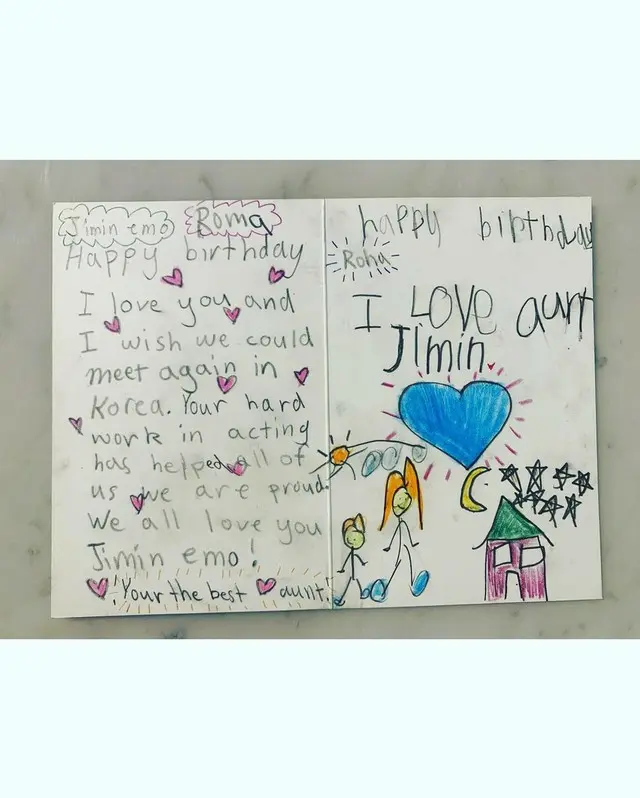 Jimin emo Roma
Happy birthday
I love you and
I wish we could
meet again in
Korea. Your hard
work in acting
has helped all of
us we are proud.
We all love you
Jimin emo!
Your the best aunt!
happy birthday
Roha
I LOVE aunt
Jimin